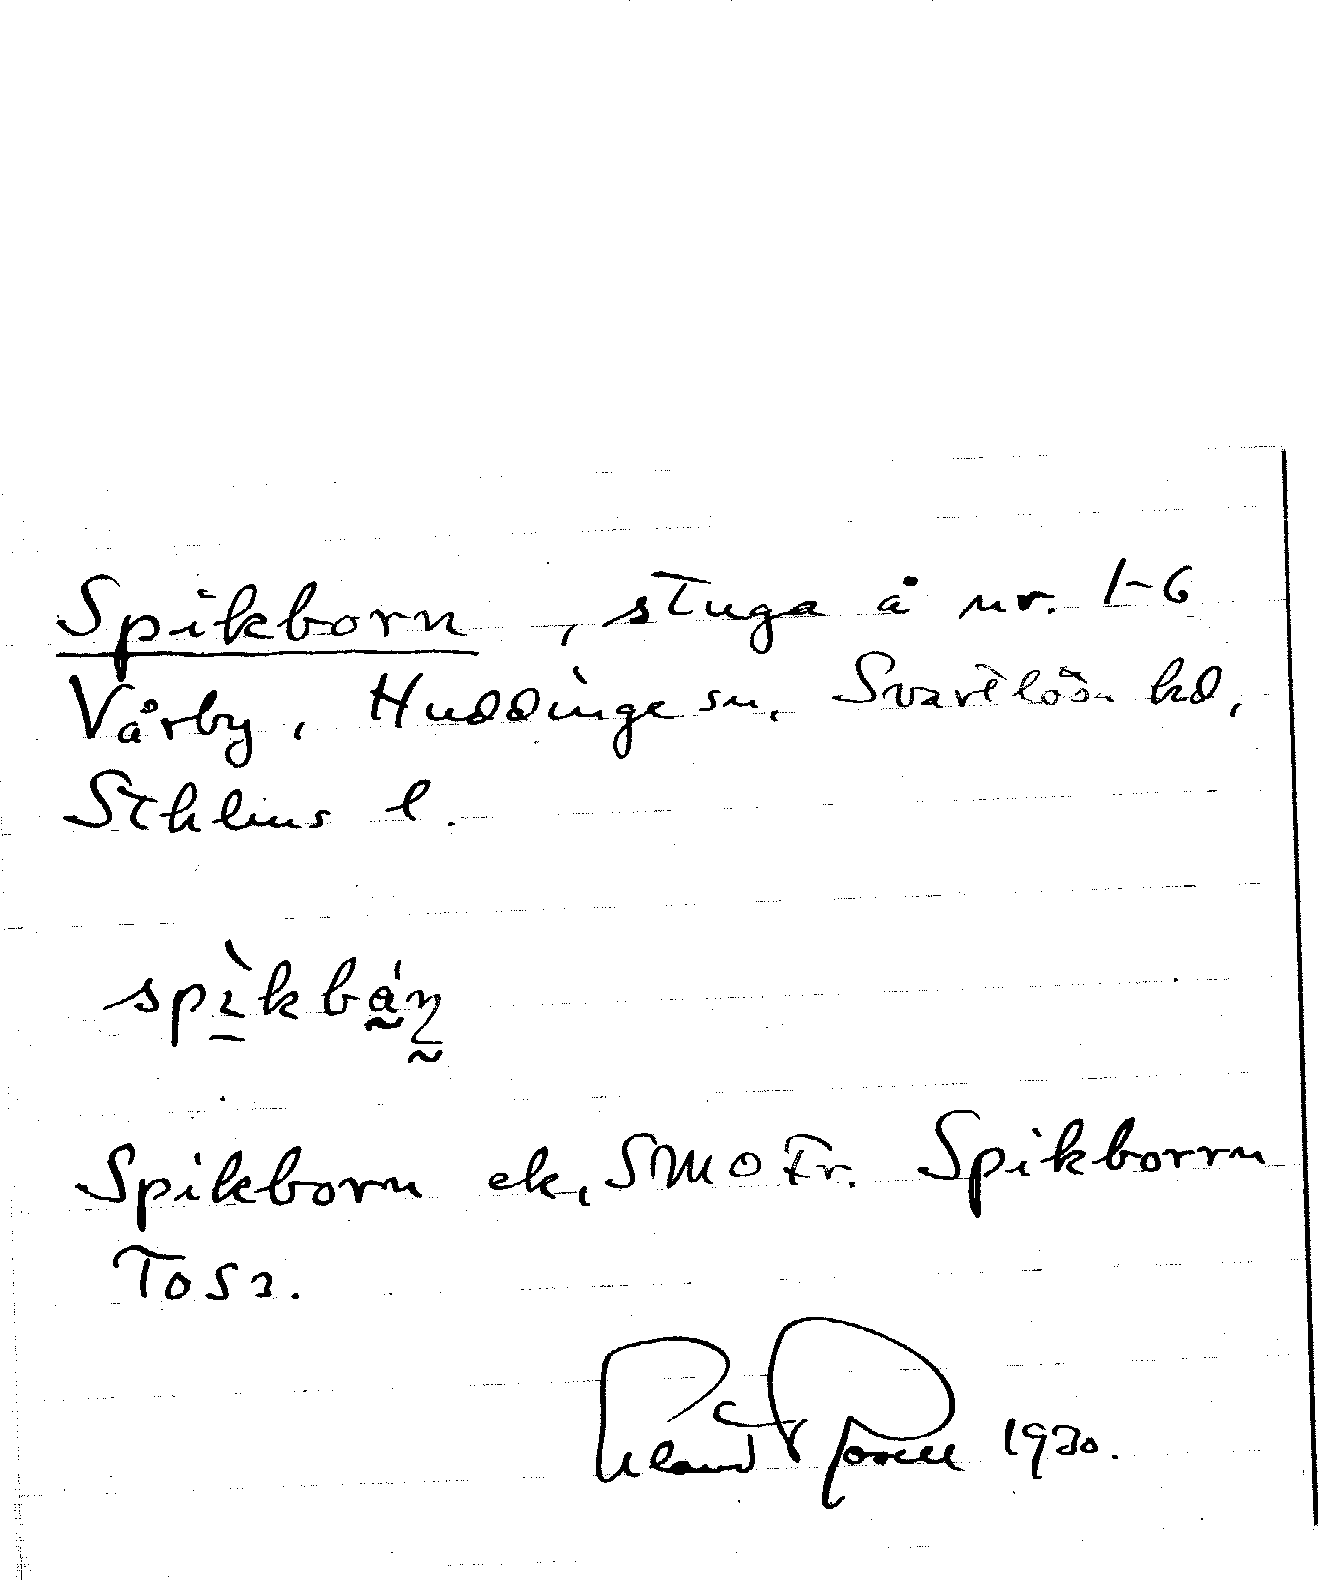 Spikborn, stuga å nr. 1-6
Vårby, Huddinge sn, Svartlösa hd,
Sthlms l.
spìkbáṇ
Spikborn ek, SMOFr. Spikborrn
TOS2.
1930.